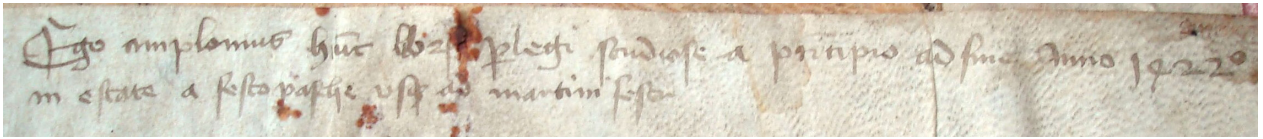 Ego amplonius hūc librū ꝑlegi studiose a prīcipio ad finē Anno 1422º
in estate a festo pasche vsqꝫ ad martini festū